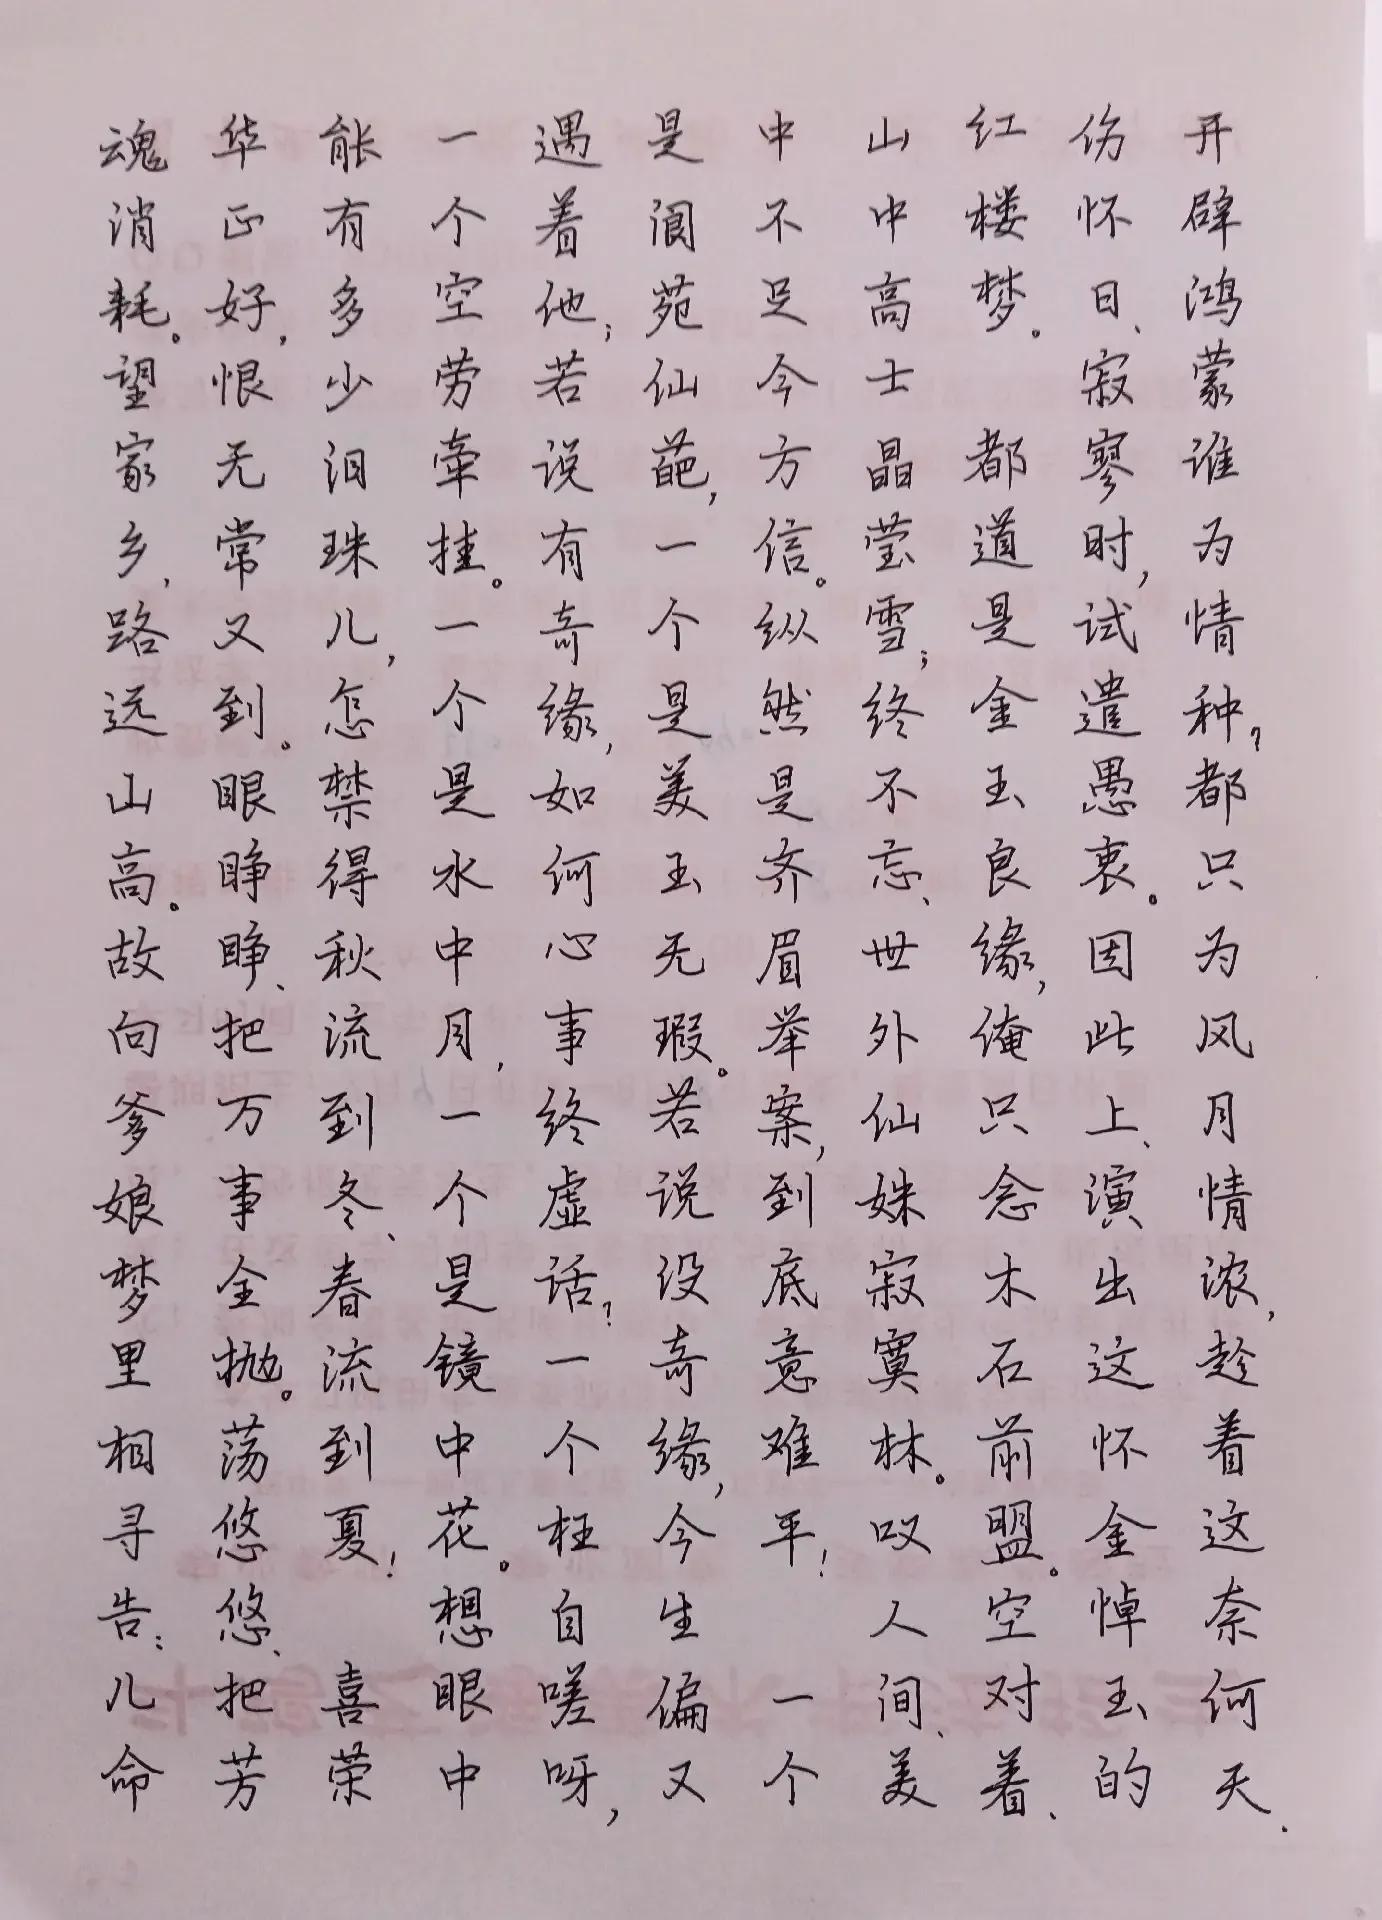 开辟鸿蒙谁为情种？都只为风月情浓，趁着这奈何天、
伤怀日、寂寥时，试遣愚衷。因此上、演出这怀金悼玉的
红楼梦。 都道是金玉良缘，俺只念木石前盟。空对着、
山中高士晶莹雪；终不忘、世外仙姝寂寞林。叹人间、美
中不足今方信。纵然是齐眉举案，到底意难平！ 一个
是阆苑仙葩，一个是美玉无瑕。若说没奇缘，今生偏又
遇着他；若说有奇缘，如何心事终虚话？一个枉自嗟呀，
一个空劳牵挂。一个是水中月，一个是镜中花。想眼中
能有多少泪珠儿，怎禁得秋流到冬、春流到夏！ 喜荣
华正好，恨无常又到。眼睁睁、把万事全抛。荡悠悠、把芳
魂消耗。望家乡，路远山高。故向爹娘梦里相寻告：儿命